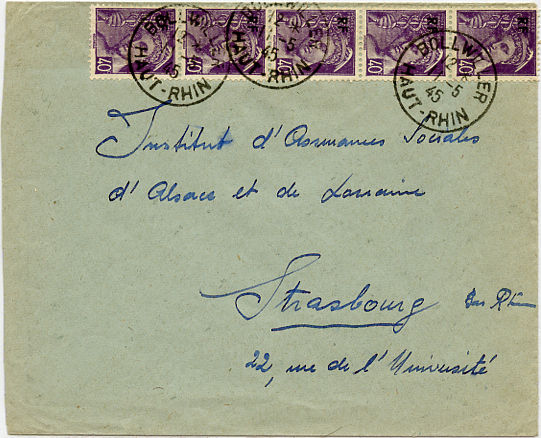 40 40 40 40 40
RF RF RF RF RF
BOLLWILLER
12
1-5
45
HAUT-RHIN
BOLLWILLER
12
1-5
45
HAUT-RHIN
BOLLWILLER
12
1-5
45
HAUT-RHIN
Institut d'Assurances Sociales
d'Alsace et de Lorraine
Strasbourg Bas Rhin
22, rue de l'Université